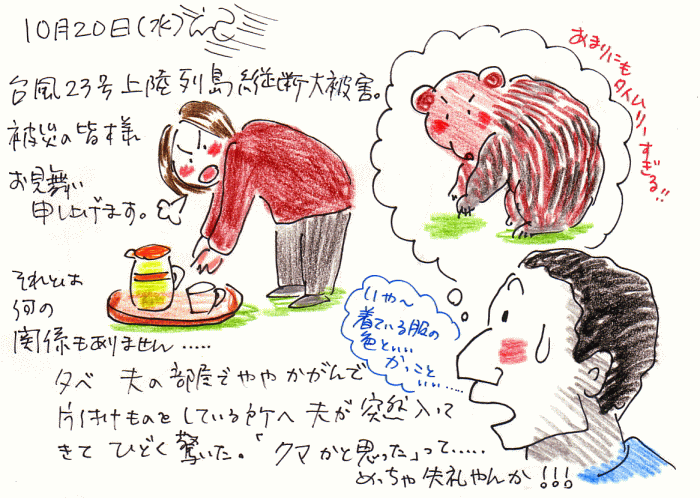 10月20日(水)
台風23号上陸列島縦断大被害。
被災の皆様
お見舞い
申し上げます。
それとは
何の
関係もありません.....
夕べ 夫の部屋でややかがんで
片付けものをしている所へ 夫が突然入って
きて ひどく驚いた。「クマかと思った」って.....
めっちゃ失礼やんか!!!
あまりにも
タイムリーすぎる!!
いや〜
着ている服の
色といい
かっこと
いい.....